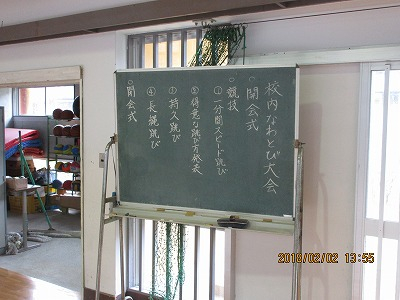 校内なわとび大会
○開会式
○競技
①一分間スピード跳び
②得意な跳び方発表
③持久跳び
④長縄跳び
○閉会式
2019/02/02 13:55